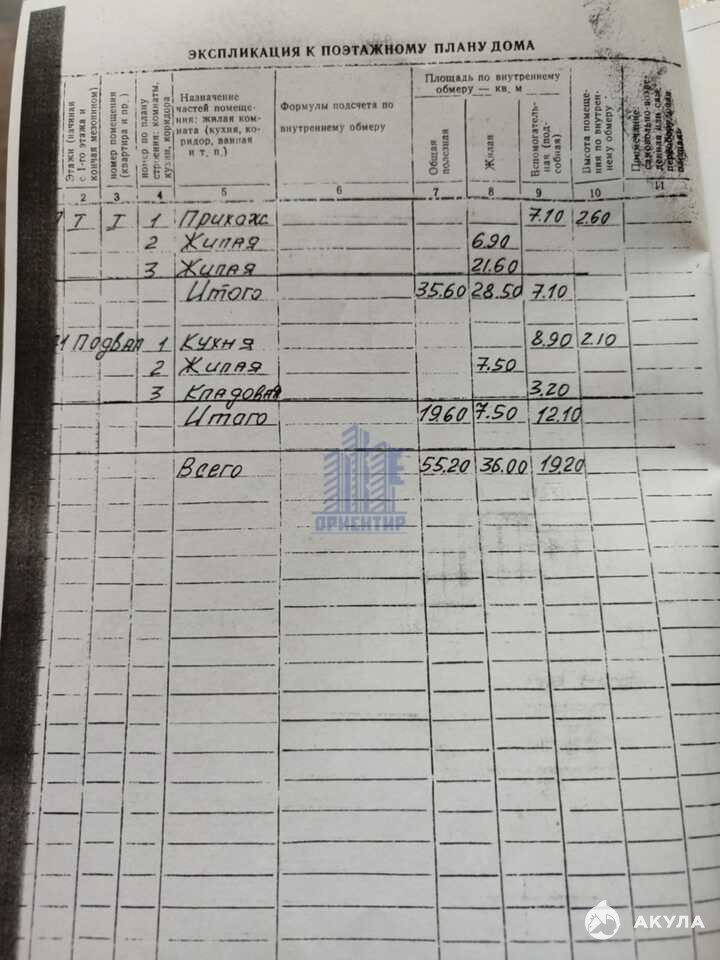 ЭКСПЛИКАЦИЯ К ПОЭТАЖНОМУ ПЛАНУ ДОМА
Этажи (начиная
с 1-го этажа и
кончая мезонином)
номер помещения
(квартира и пр.)
номер по плану
строения: комнаты,
кухни, коридора
Назначение
частей помеще-
ния: жилая ком-
ната (кухня, ко-
ридор, ванная
и т. п.)
Формулы подсчета по
внутреннему обмеру
Площадь по внутреннему
обмеру — кв. м
Общая
полезная
Жилая
Вспомогатель-
ная (под-
собная)
Высота помеще-
ния по внутрен-
нему обмеру
Примечание:
2 3 4 5 6 7 8 9 10 11
I I 1 Прихожс 7.10 2.60
2 Жилая 6.90
3 Жилая 21.60
Итого 35.60 28.50 7.10
Подвал 1 Кухня 8.90 2.10
2 Жилая 7.50
3 Кладовая 3.20
Итого 19.60 7.50 12.10
Всего 55.20 36.00 19.20
ОРИЕНТИР
АКУЛА